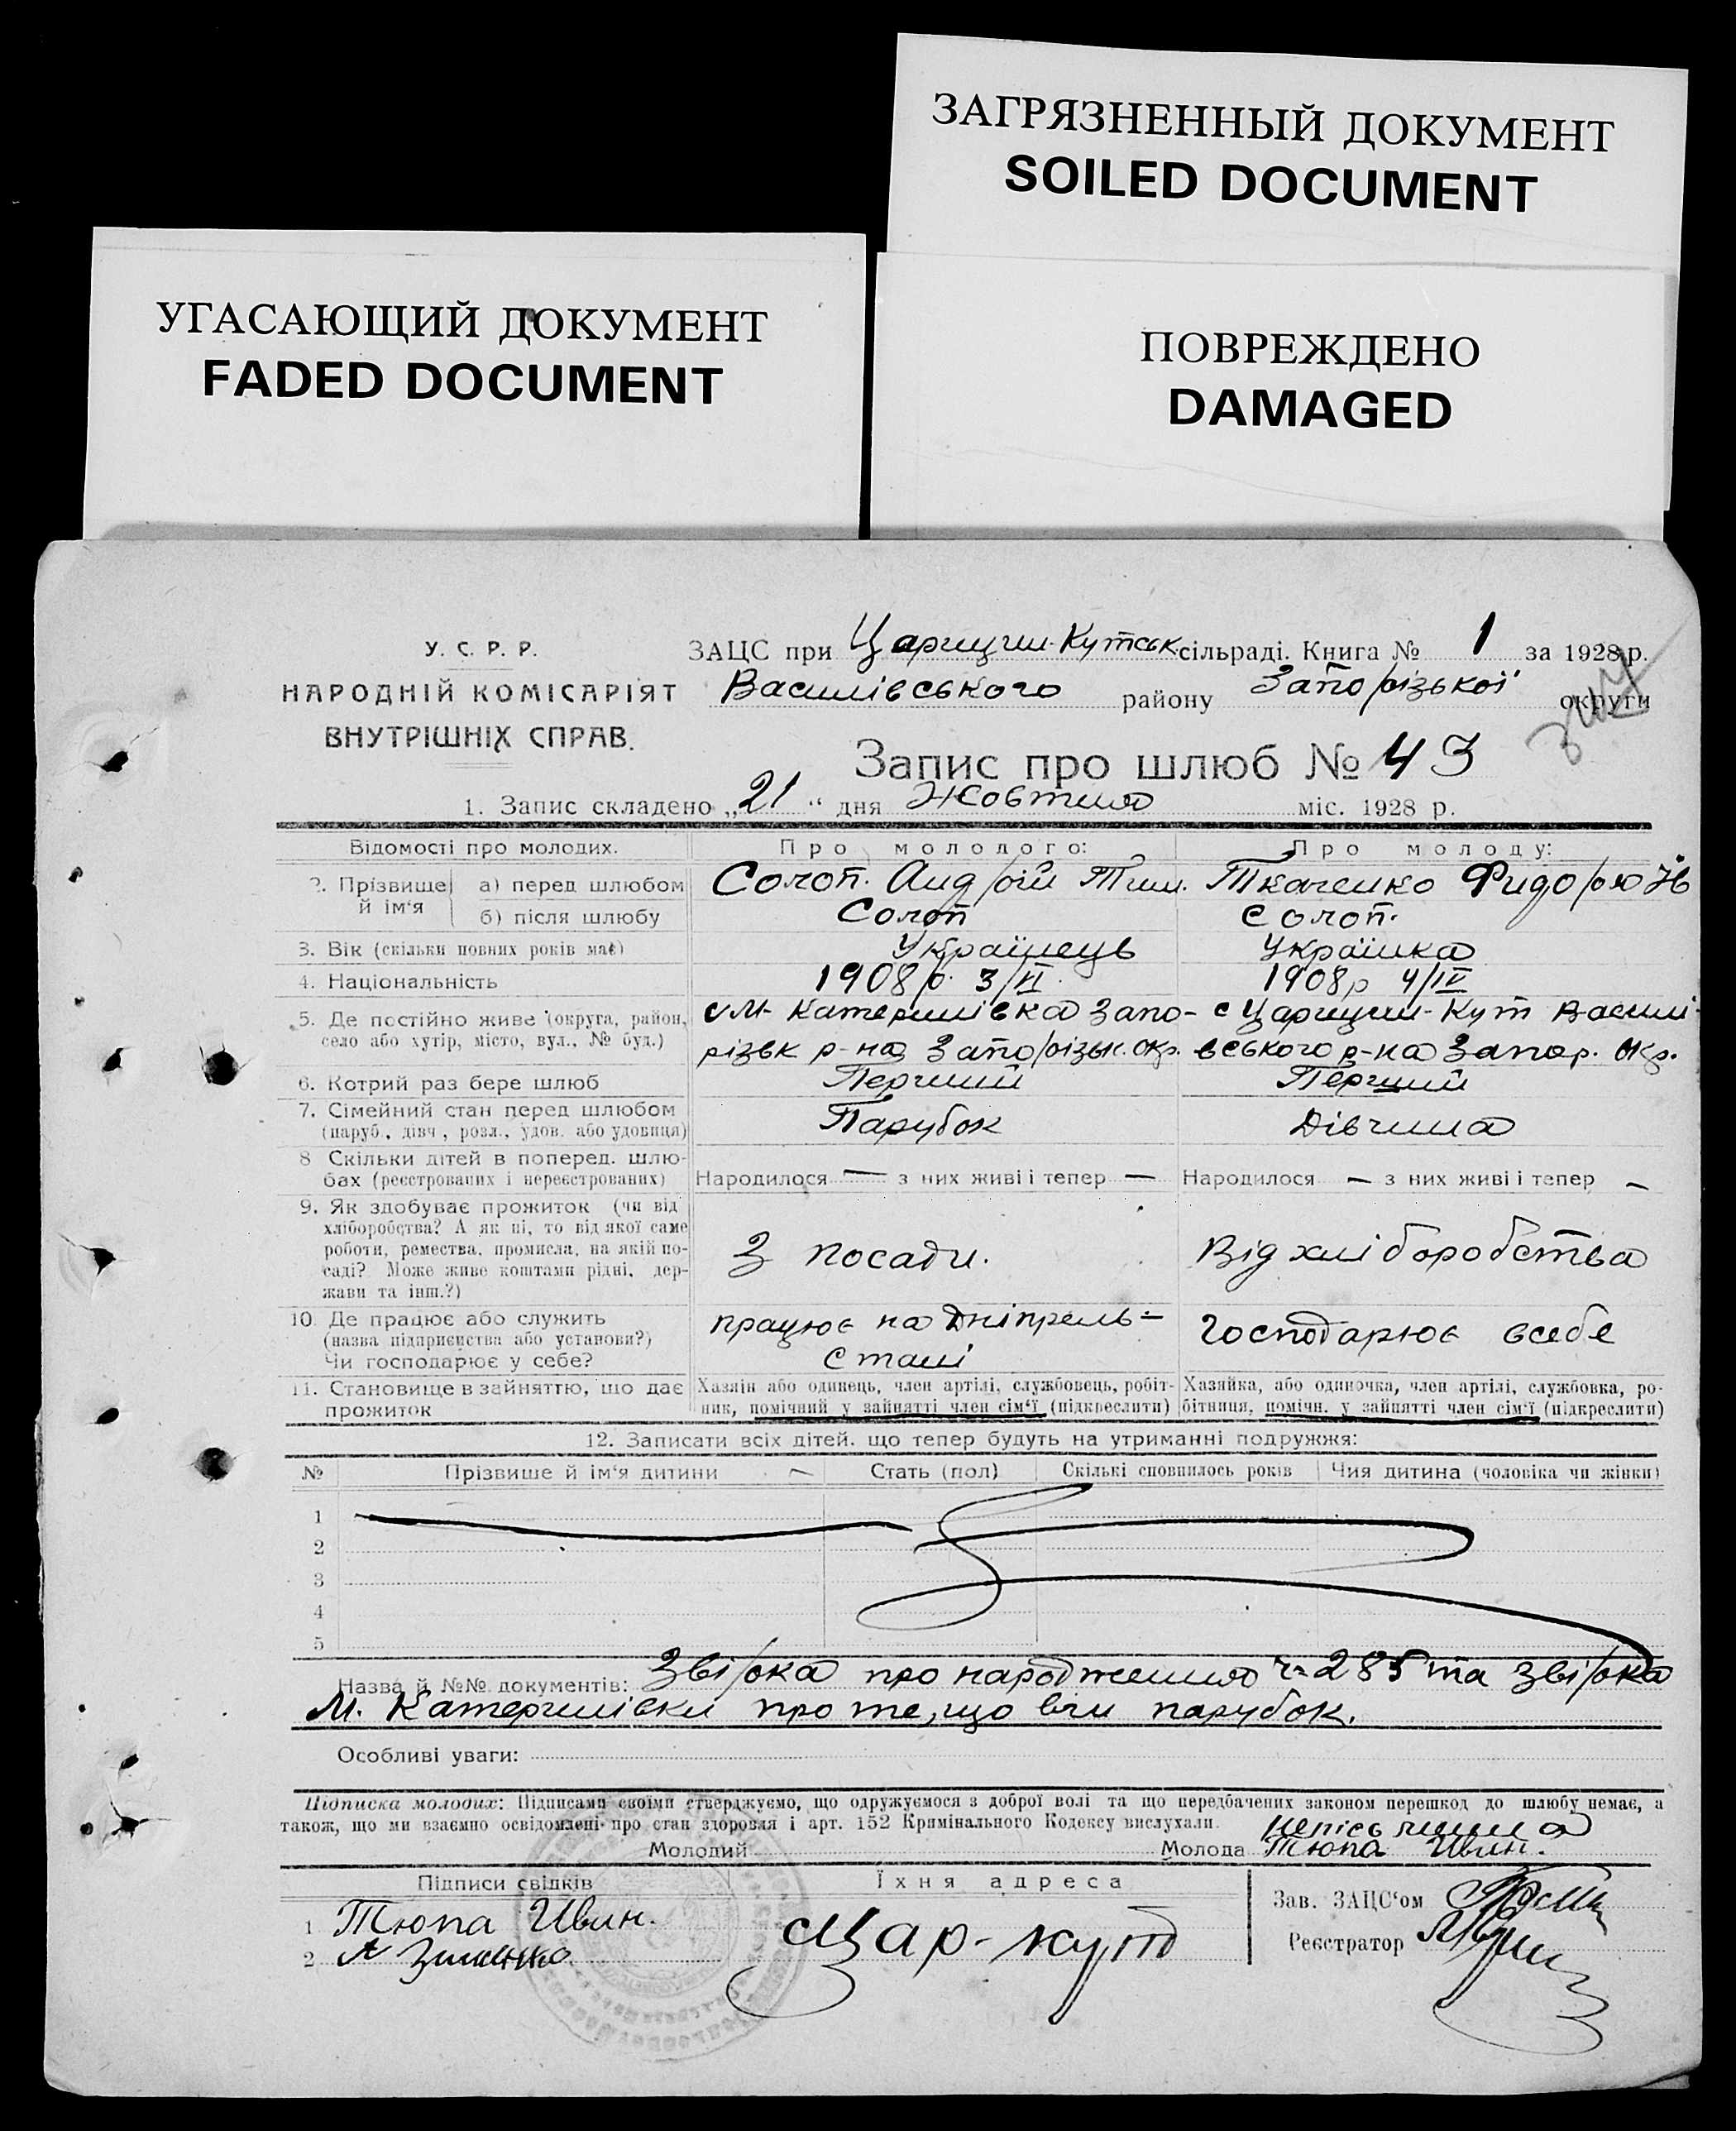 ЗАГРЯЗНЕННЫЙ ДОКУМЕНТ
SOILED DOCUMENT
УГАСАЮЩИЙ ДОКУМЕНТ
FADED DOCUMENT
ПОВРЕЖДЕНО
DAMAGED
У. С. Р. Р.
НАРОДНІЙ КОМІСАРІЯТ
ВНУТРІШНІХ СПРАВ.
ЗАЦС при Царицин-Кутськ сільраді. Книга № 1 за 1928 р.
Василівського району Запорізької округи
Запис про шлюб № 43
1. Запис складено „21“ дня Жовтня міс. 1928 р.
Відомості про молодих. Про молодого: Про молоду:
2. Прізвище й ім‘я а) перед шлюбом Солоп. Андрій Тим. Ткаченко Фидорю Ів
б) після шлюбу Солоп Солоп.
3. Вік (скільки повних років має) Українець Українка
4. Національність 1908р. 3/VI. 1908р 4/IV
5. Де постійно живе (округа, район, село або хутір, місто, вул., № буд.)
с М-Катеринівка Запо-
різьк р-на Запорізьк. окр.
с Царицин-Кут Василі-
вського р-на Запор. Окр.
6. Котрий раз бере шлюб Перший Перший
7. Сімейний стан перед шлюбом Парубок Дівчина
(паруб., дівч., розл., удов. або удовиця)
8 Скільки дітей в поперед. шлю-
бах (реєстрованих і нереєстрованих) Народилося — з них живі і тепер — Народилося — з них живі і тепер —
9. Як здобуває прожиток (чи від
хліборобства? А як ні, то від якої саме
роботи, ремества, промисла, на якій по-
саді? Може живе коштами рідні, дер-
жави та інш.?)
З посади. Від хліборобства
10. Де працює або служить
(назва підприємства або установи?)
Чи господарює у себе?
працює на Дніпрель-
стані
Господарює всебе
11. Становище в зайняттю, що дає
прожиток
Хазяїн або одинець, член артілі, службовець, робіт-
ник, помічний у зайнятті член сім‘ї (підкреслити)
Хазяйка, або одиночка, член артілі, службовка, ро-
бітниця, помічн. у зайнятті член сім‘ї (підкреслити)
12. Записати всіх дітей, що тепер будуть на утриманні подружжя:
№ Прізвище й ім‘я дитини Стать (пол) Скількі сповнилось років Чия дитина (чоловіка чи жінки)
1
2
3
4
5
Назва й №№ документів: Звірка про народження ч. 285 та звірка
М. Катеринівки про те, що він парубок.
Особливі уваги:
Підписка молодих: Підписами своїми стверджуємо, що одружуємося з доброї волі та що передбачених законом перешкод до шлюбу немає, а
також, що ми взаємно освідомлені про стан здоровля і арт. 152 Кримінального Кодексу вислухали.
Молодий Молода Тюпа Ивин.
Підписи свідків Їхня адреса
1 Тюпа Ивин.
2
Цар-кут
Зав. ЗАЦС‘ом
Реєстратор